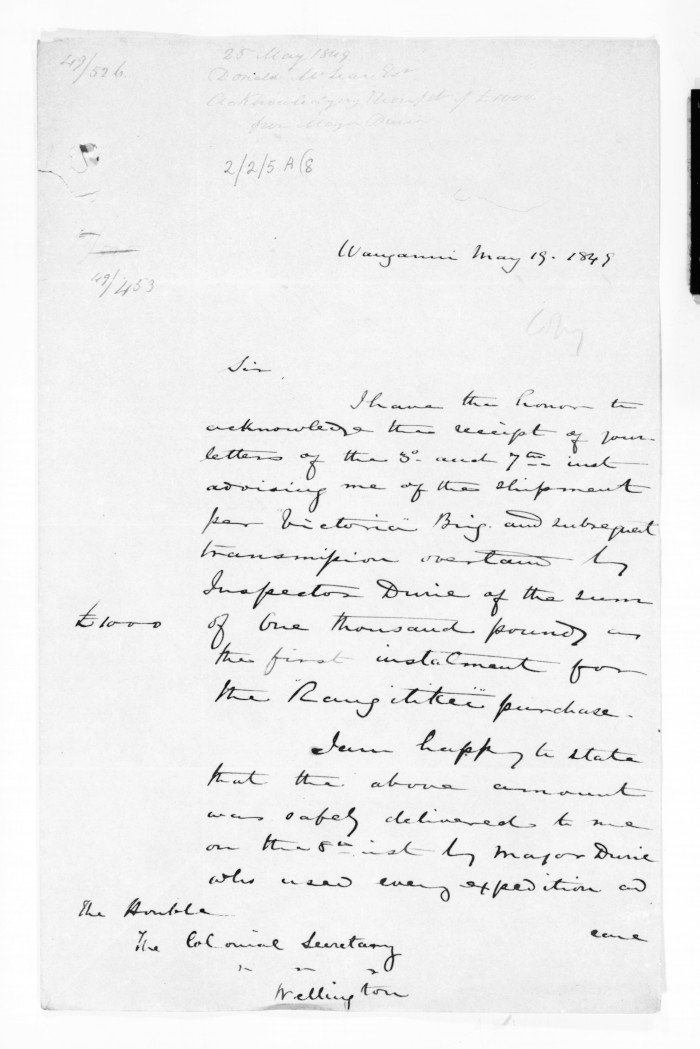 49/526.
25 May 1849
Donald McLean Esq
Acknowledging Receipt of £1000
from Major Durie
2/2/5 A(8
49/453
Wanganui May 19. 1849
Copy
Sir,
I have the honor to
acknowledge the receipt of your
letters of the 3d and 7th inst
advising me of the shipment
per "Victoria" Brig. and subsequent
transmission overland by
Inspector Durie of the sum
£1000 of One thousand pounds as
the first instalment for
the "Rangitikei" purchase.
I am happy to state
that the above amount
was safely delivered to me
on the 8th inst by Major Durie
who used every expedition and
care
The Honble
The Colonial Secretary
" " "
Wellington